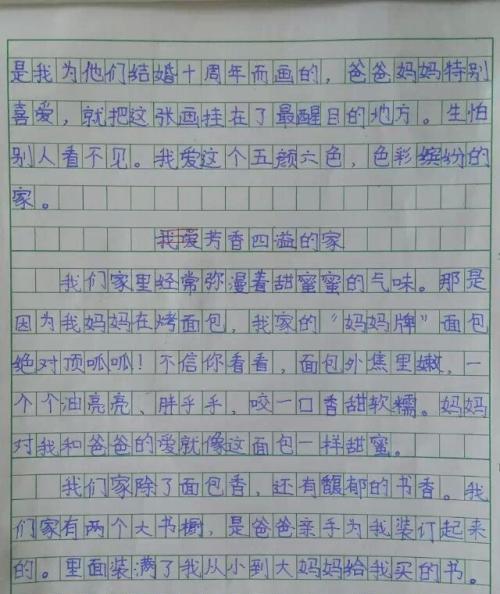 是我为他们结婚十周年而画的，爸爸妈妈特别
喜爱，就把这张画挂在了最醒目的地方。生怕
别人看不见。我爱这个五颜六色，色彩缤纷的
家。
我爱芳香四溢的家
我们家里经常弥漫着甜蜜蜜的气味。那是
因为我妈妈在烤面包，我家的“妈妈牌”面包
绝对顶呱呱！不信你看看，面包外焦里嫩，一
个个油亮亮、胖乎乎，咬一口香甜软糯。妈妈
对我和爸爸的爱就像这面包一样甜蜜。
我们家除了面包香，还有馥郁的书香。我
们家有两个大书橱，是爸爸亲手为我装订起来
的。里面装满了我从小到大妈妈给我买的书。